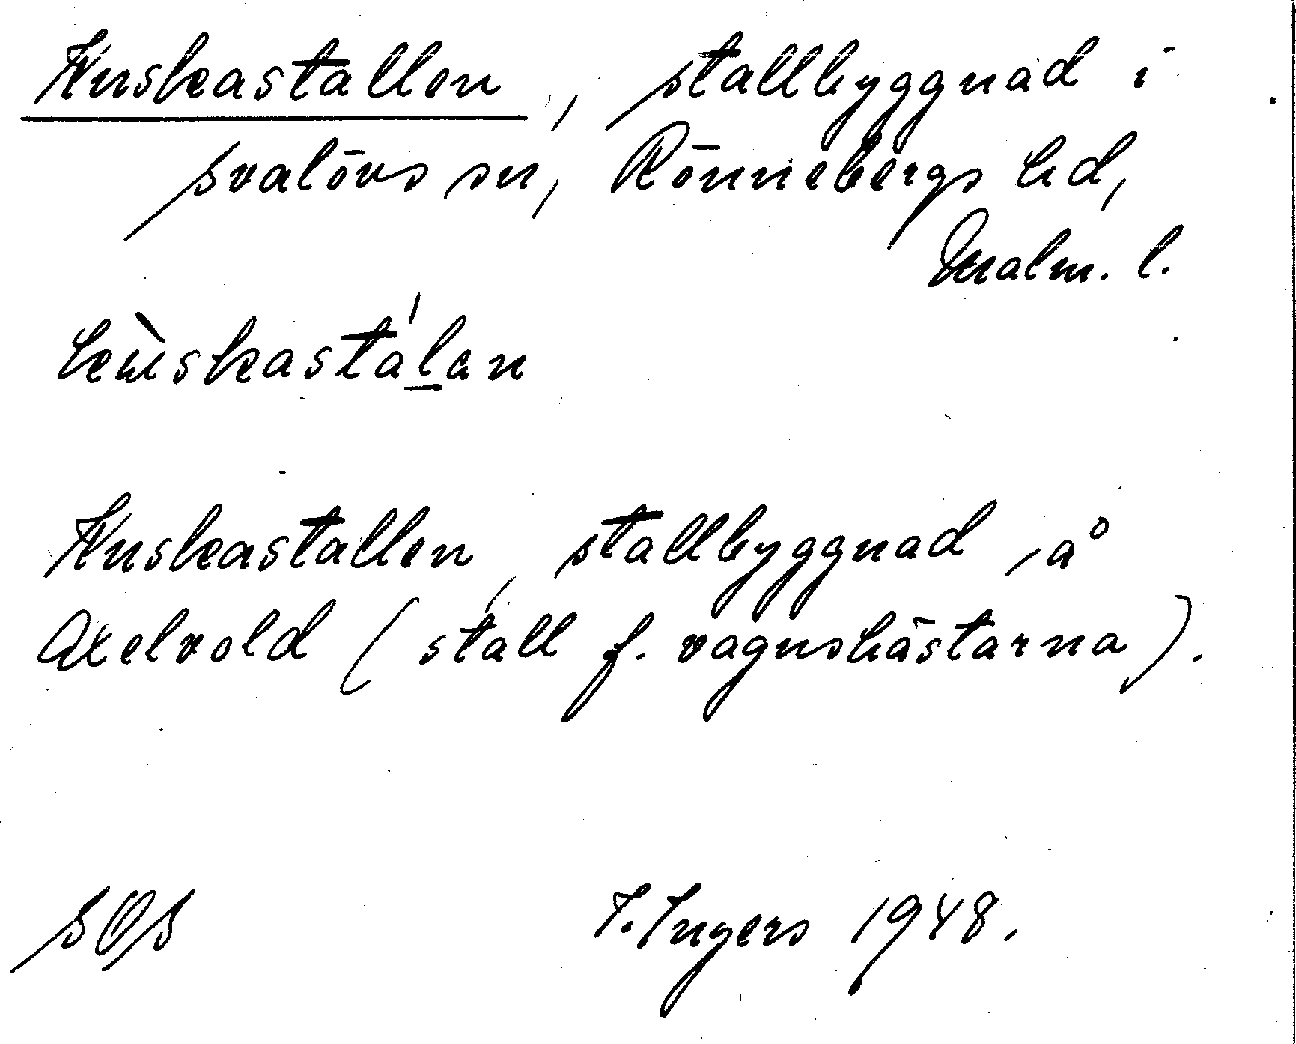 Kuskastallen, stallbyggnad i
Svalövs sn, Rönnebergs hd,
Malm. l.
Kuskastallen, stallbyggnad å
Axelvold (stall f. vagnshästarna).
SOS I. Ingers 1948.